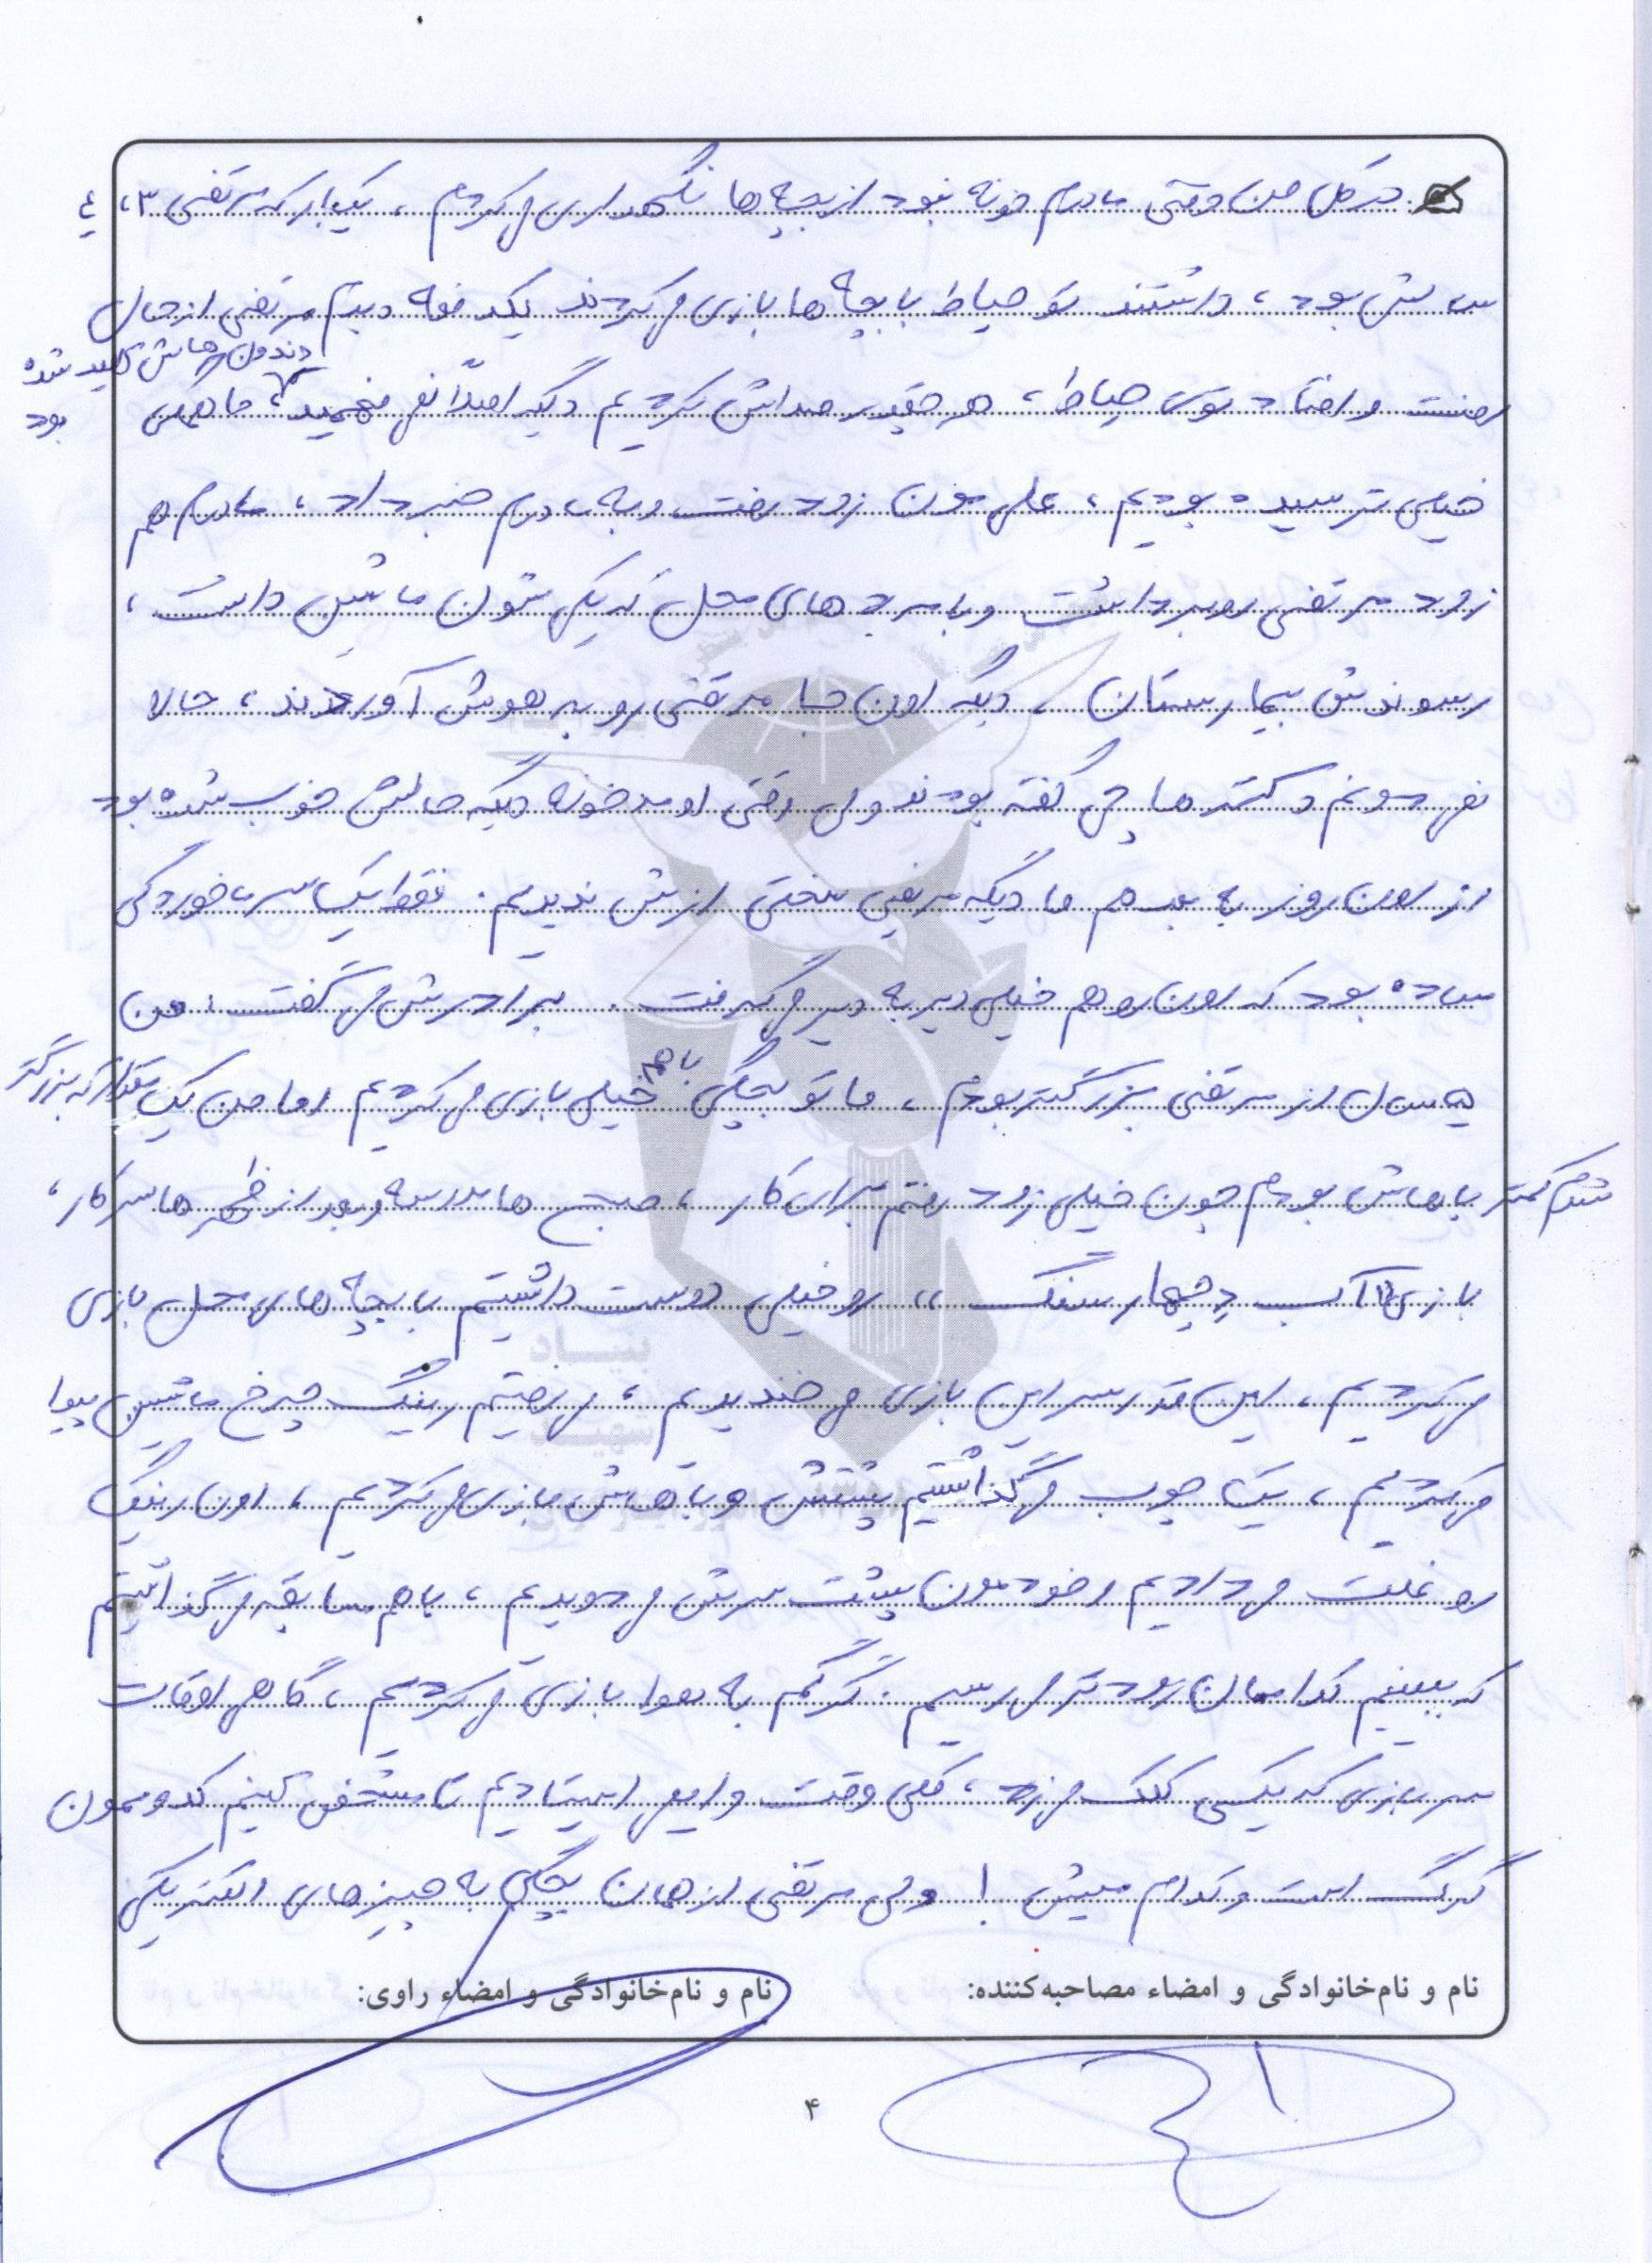 در کل من وقتی مادرم خونه نبود از بچه ها نگهداری می کردم ، یکبار که مرتضی ۳، ٤
سالش بود ، داشتند تو حیاط با بچه ها بازی می کردند یکدفعه دیدم مرتضی از حال
دندون هایش کلید شده بود
رفت و افتاد توی حیاط ، هر چقدر صدایش کردیم دیگه اصلاً نمی فهمید ، ما همگی
خیلی ترسیده بودیم ، علی مون زود رفت و به مادرم خبر داد ، مادرم هم
زود مرتضی رو برداشت و با مردهای محل که یکی شون ماشین داشت ،
رسوندش بیمارستان ، دیگه اون جا مرتضی رو به هوش آوردند ، حالا
نمی دونم دکترها چی گفته بودند ولی وقتی اومد خونه دیگه حالش خوب شده بود
از اون روز به بعد هم ما دیگه مریضی سختی ازش ندیدیم . فقط یک سرماخوردگی
ساده بود که اون رو هم خیلی دیر به دیر می گرفت . برادرش می گفت : من
۵ سال از مرتضی بزرگتر بودم ، ما تو بچگی باهم خیلی بازی می کردیم اما من یک مقدار که بزرگتر
شدم کمتر باهاش بودم چون خیلی زود رفتم برای کار ، صبح ها مدرسه و بعد از ظهرها سر کار ،
بازی "آسب و چهار سنگ" رو خیلی دوست داشتیم با بچه های محل بازی
می کردیم ، این قدر سر این بازی می خندیدیم ، می رفتیم رینگ چرخ ماشین پیدا
می کردیم ، یک چوب می گذاشتیم پشتش و باهاش بازی می کردیم ، اون رینگ
رو غلت می دادیم و خودمون پشت سرش می دویدیم ، با هم مسابقه می گذاشتیم
که ببینیم کدامان زودتر می رسیم . گرگم به هوا بازی می کردیم ، گاهی اوقات
سر بازی که یکی کلک می زد ، کلی وقت وا می ایستادیم تا مشخص کنیم کدوممون
گرگ است و کدام میش ! ولی مرتضی از همان بچگی به چیزهای الکتریکی
نام و نام‌خانوادگی و امضاء مصاحبه‌کننده:
نام و نام‌خانوادگی و امضاء راوی:
۴